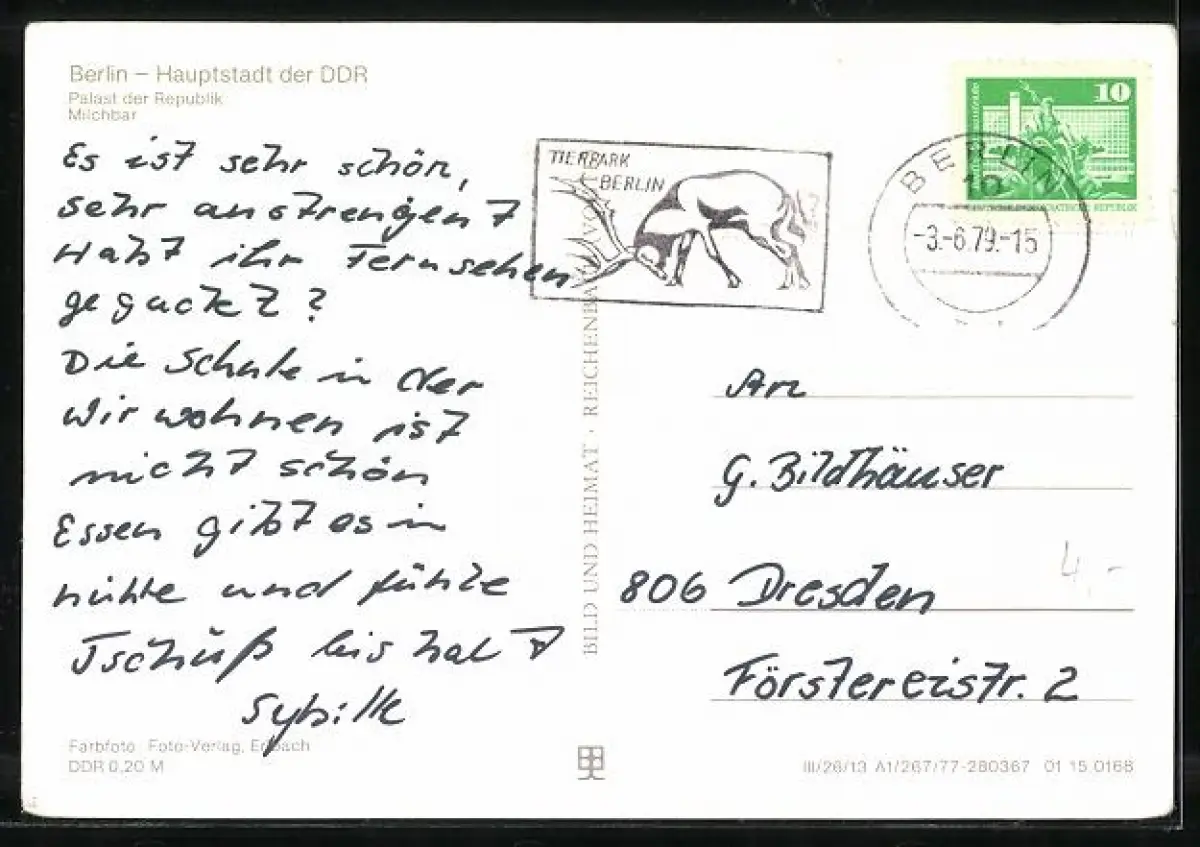 Berlin – Hauptstadt der DDR
Palast der Republik
Milchbar
Es ist sehr schön,
sehr anstrengent
Habt ihr Fernsehen
geguckt?
Die Schule in der
wir wohnen ist
nicht schön
Essen gibt es in
und
Tschüß bis bald
Sybille
Farbfoto: Foto-Verlag, Erlbach
DDR 0,20 M
BILD UND HEIMAT · REICHENBACH
TIERPARK
BERLIN
BERLIN
10
-3.-6.79.-15
10
DEUTSCHE DEMOKRATISCHE REPUBLIK
An
G. Bildhäuser
806 Dresden
Förstereistr. 2
4,-
III/26/13 A1/267/77-280367 01 15 0168